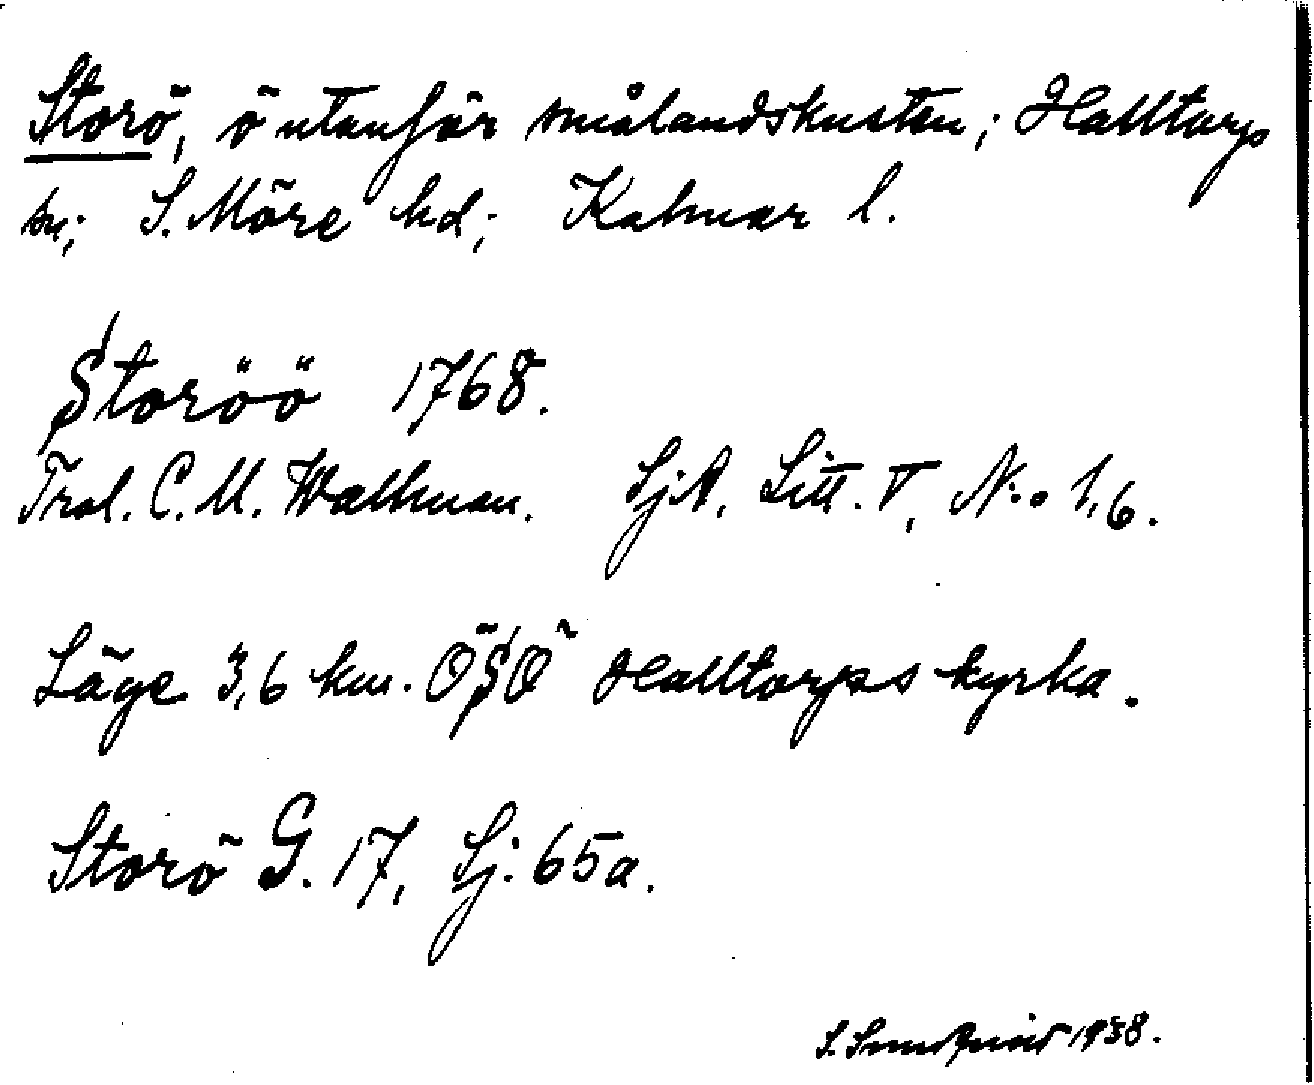 Storö, ö utanför smålandskusten; Halltorps
sn; S. Möre hd; Kalmar l.
Storöö 1768.
Trol. C. M. Wallman. SjA. Litt. V, N:o 1,6.
Läge 3,6 km. ÖSÖ Halltorps kyrka.
Storö G. 17, Sj. 65a.
S. 1938.